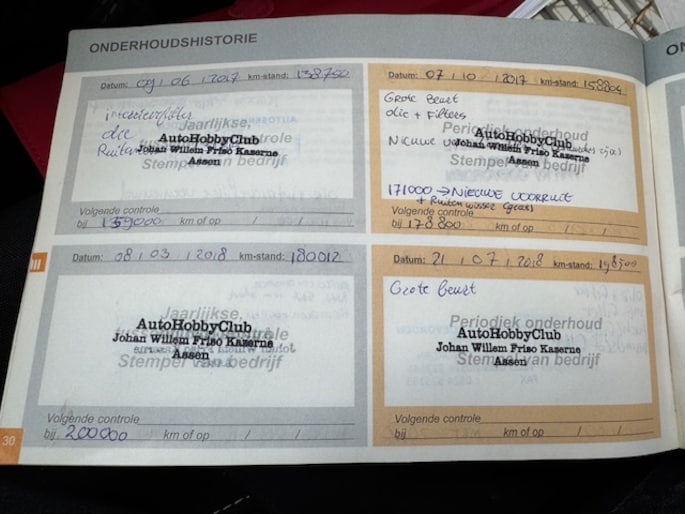 ONDERHOUDSHISTORIE
Datum: 09 / 06 / 2017 km-stand: 138750
interieurfilter
olie
Ruiten
Jaarlijkse,
AutoHobbyClub
Johan Willem Friso Kazerne
Assen
Stempel van bedrijf
Volgende controle
bij 159000 km of op / /
Datum: 07 / 10 / 2017 km-stand: 158804
Grote Beurt
olie + Filters
Nieuwe
Periodiek onderhoud
AutoHobbyClub
Johan Willem Friso Kazerne
Assen
Stempel van bedrijf
171000 → Nieuwe voorruit
+ Ruiten wisser
Volgende controle
bij 178800 km of op / /
Datum: 08 / 03 / 2018 km-stand: 180012
Jaarlijkse,
AutoHobbyClub
Johan Willem Friso Kazerne
Assen
Stempel van bedrijf
Volgende controle
bij 200000 km of op / /
Datum: 21 / 07 / 2018 km-stand:
Grote Beurt
Periodiek onderhoud
AutoHobbyClub
Johan Willem Friso Kazerne
Assen
Stempel van bedrijf
Volgende controle
bij km of op / /
30